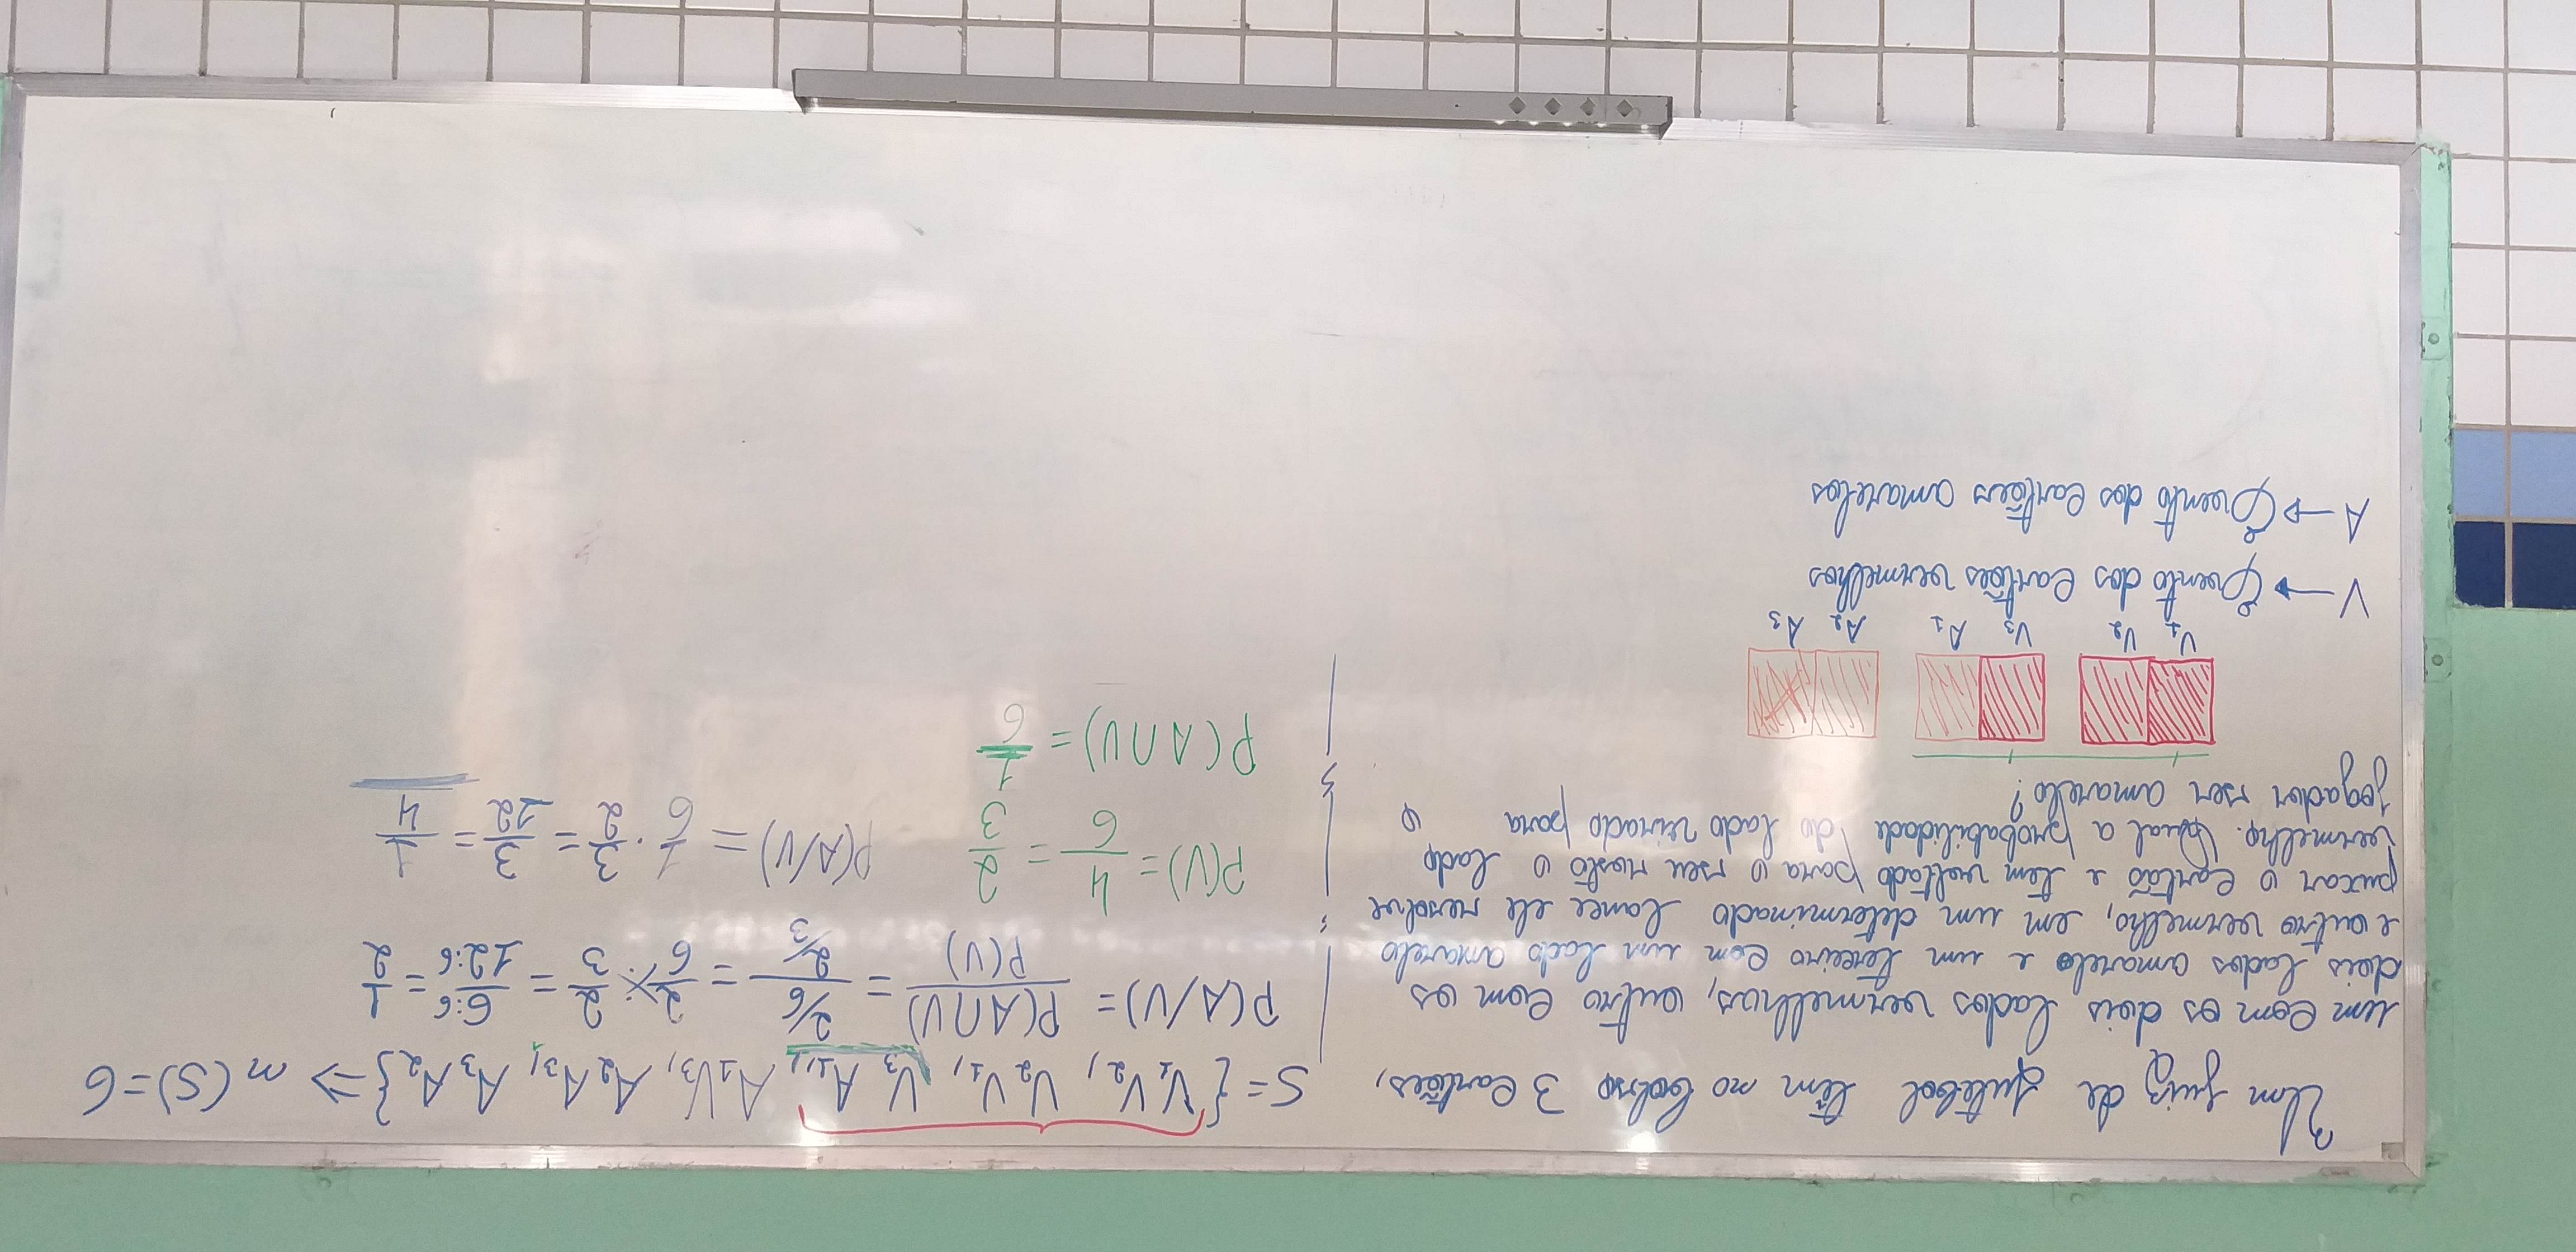 Um juiz de futebol têm no bolso 3 cartões,
um com os dois lados vermelhos, outro com os
dois lados amarelo e um terceiro com um lado amarelo
e outro vermelho, em um determinado lance ele resolve
puxar o cartão e tem voltado para o seu rosto o lado
vermelho. Qual a probabilidade do lado virado para o
jogador ser amarelo?
V₁ V₂ V₃ A₁ A₂ A₃
V → Evento dos cartões vermelhos
A → Evento dos cartões amarelos
S = {V₁V₂, V₂V₁, V₃A₁, A₁V₃, A₂A₃, A₃A₂} ⇒ n(S) = 6
P(A/V) = P(A∩V)/P(V) = (2/6)/(2/3) = 2/6 × 2/3 = 6:6/12:6 = 1/2
P(V) = 4/6 = 2/3
P(A/V) = 1/6 · 3/2 = 3/12 = 1/4
P(A∩V) = 1/6